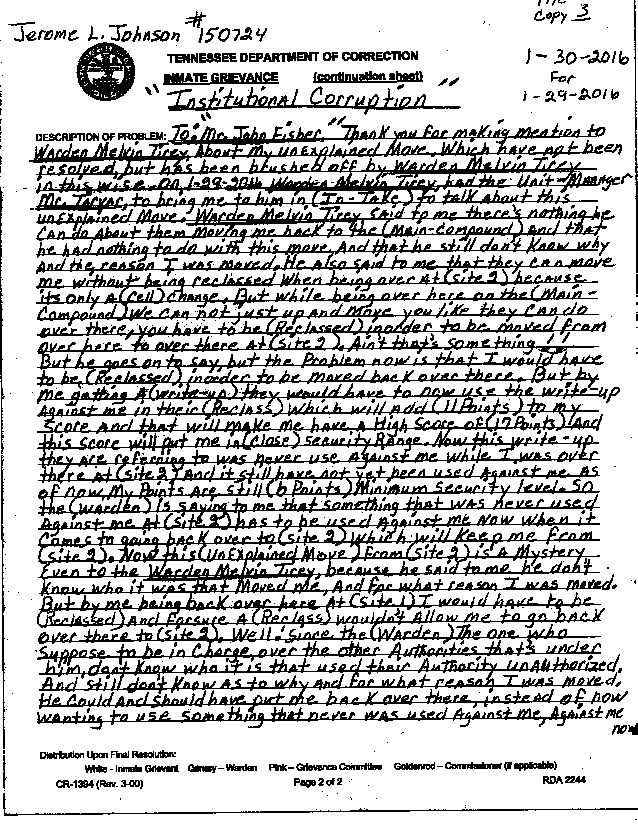 Copy 3
Jerome L. Johnson #150724
TENNESSEE DEPARTMENT OF CORRECTION
1-30-2016
INMATE GRIEVANCE (continuation sheet)
For
"Institutional Corruption"
1-29-2016
DESCRIPTION OF PROBLEM: To: Mr. John Fisher, "Thank you For making mention to
Warden Melvin Tirey, About My unExplained Move. Which have not been
resolved, but has been brushed off by Warden Melvin Tirey
in this wise. On 1-29-2016 Warden Melvin Tirey, had the Unit-Manager
Mr. to bring me to him in (In-Take) to talk about this
unExplained Move. Warden Melvin Tirey said to me there's nothing he
can do About them Moving me back to the (Main-Compound) And that
he had nothing to do with this move, And that he still don't Know why
And the reason I was moved. He Also said to me that they can move
me without being reclassed When being over At (site 2) because
its only A (cell) change. But while being over here on the (Main-
Compound) We can not just up and Move you like they can do
over there, you have to be (Reclassed) inorder to be moved from
over here to over there At (Site 2). Ain't that's something!!
But he goes on to say, but the Problem now is that I would have
to be (Reclassed), inorder to be moved back over there. But by
me getting A (write-up) they would have to now use the write-up
Against me in their (Reclass) Which will Add (11 Points) to my
Score And that will make me have A High Score of (17 Points) And
this score will put me in (Close) security Range. Now this write-up
they are referring to was never use Against me while I was over
there At (Site 2) And it still have not yet been used Against me. As
of now, My Points Are still (6 Points) Minimum Security level. So
the (warden) is saying to me that something that was never used
Against me At (Site 2) has to be used Against me Now when it
Comes to going back over to (site 2) Which will Keep me From
(site 2). Now this (UnExplained Move) From (Site 2) is A Mystery
Even to the Warden Melvin Tirey, because he said to me he don't
Know who it was that Moved me, And for what reason I was moved.
But by me being back over here At (Site 1) I would have to be
(Reclassed) And forsure A (Reclass) wouldn't Allow me to go back
over there to (Site 2). Well. Since the (Warden) The one who
Suppose to be in Charge, over the other Authorities that's under
him, don't Know who it is that used their Authority unAuthorized.
And Still don't Know As to why And for what reason I was moved.
He Could And Should have put me back over there, instead of now
wanting to use something that never was used Against me, Against me
now
Distribution Upon Final Resolution:
White - Inmate Grievant Canary - Warden Pink - Grievance Committee Goldenrod - Commissioner (if applicable)
CR-1394 (Rev. 3-00) Page 2 of 2 RDA 2244